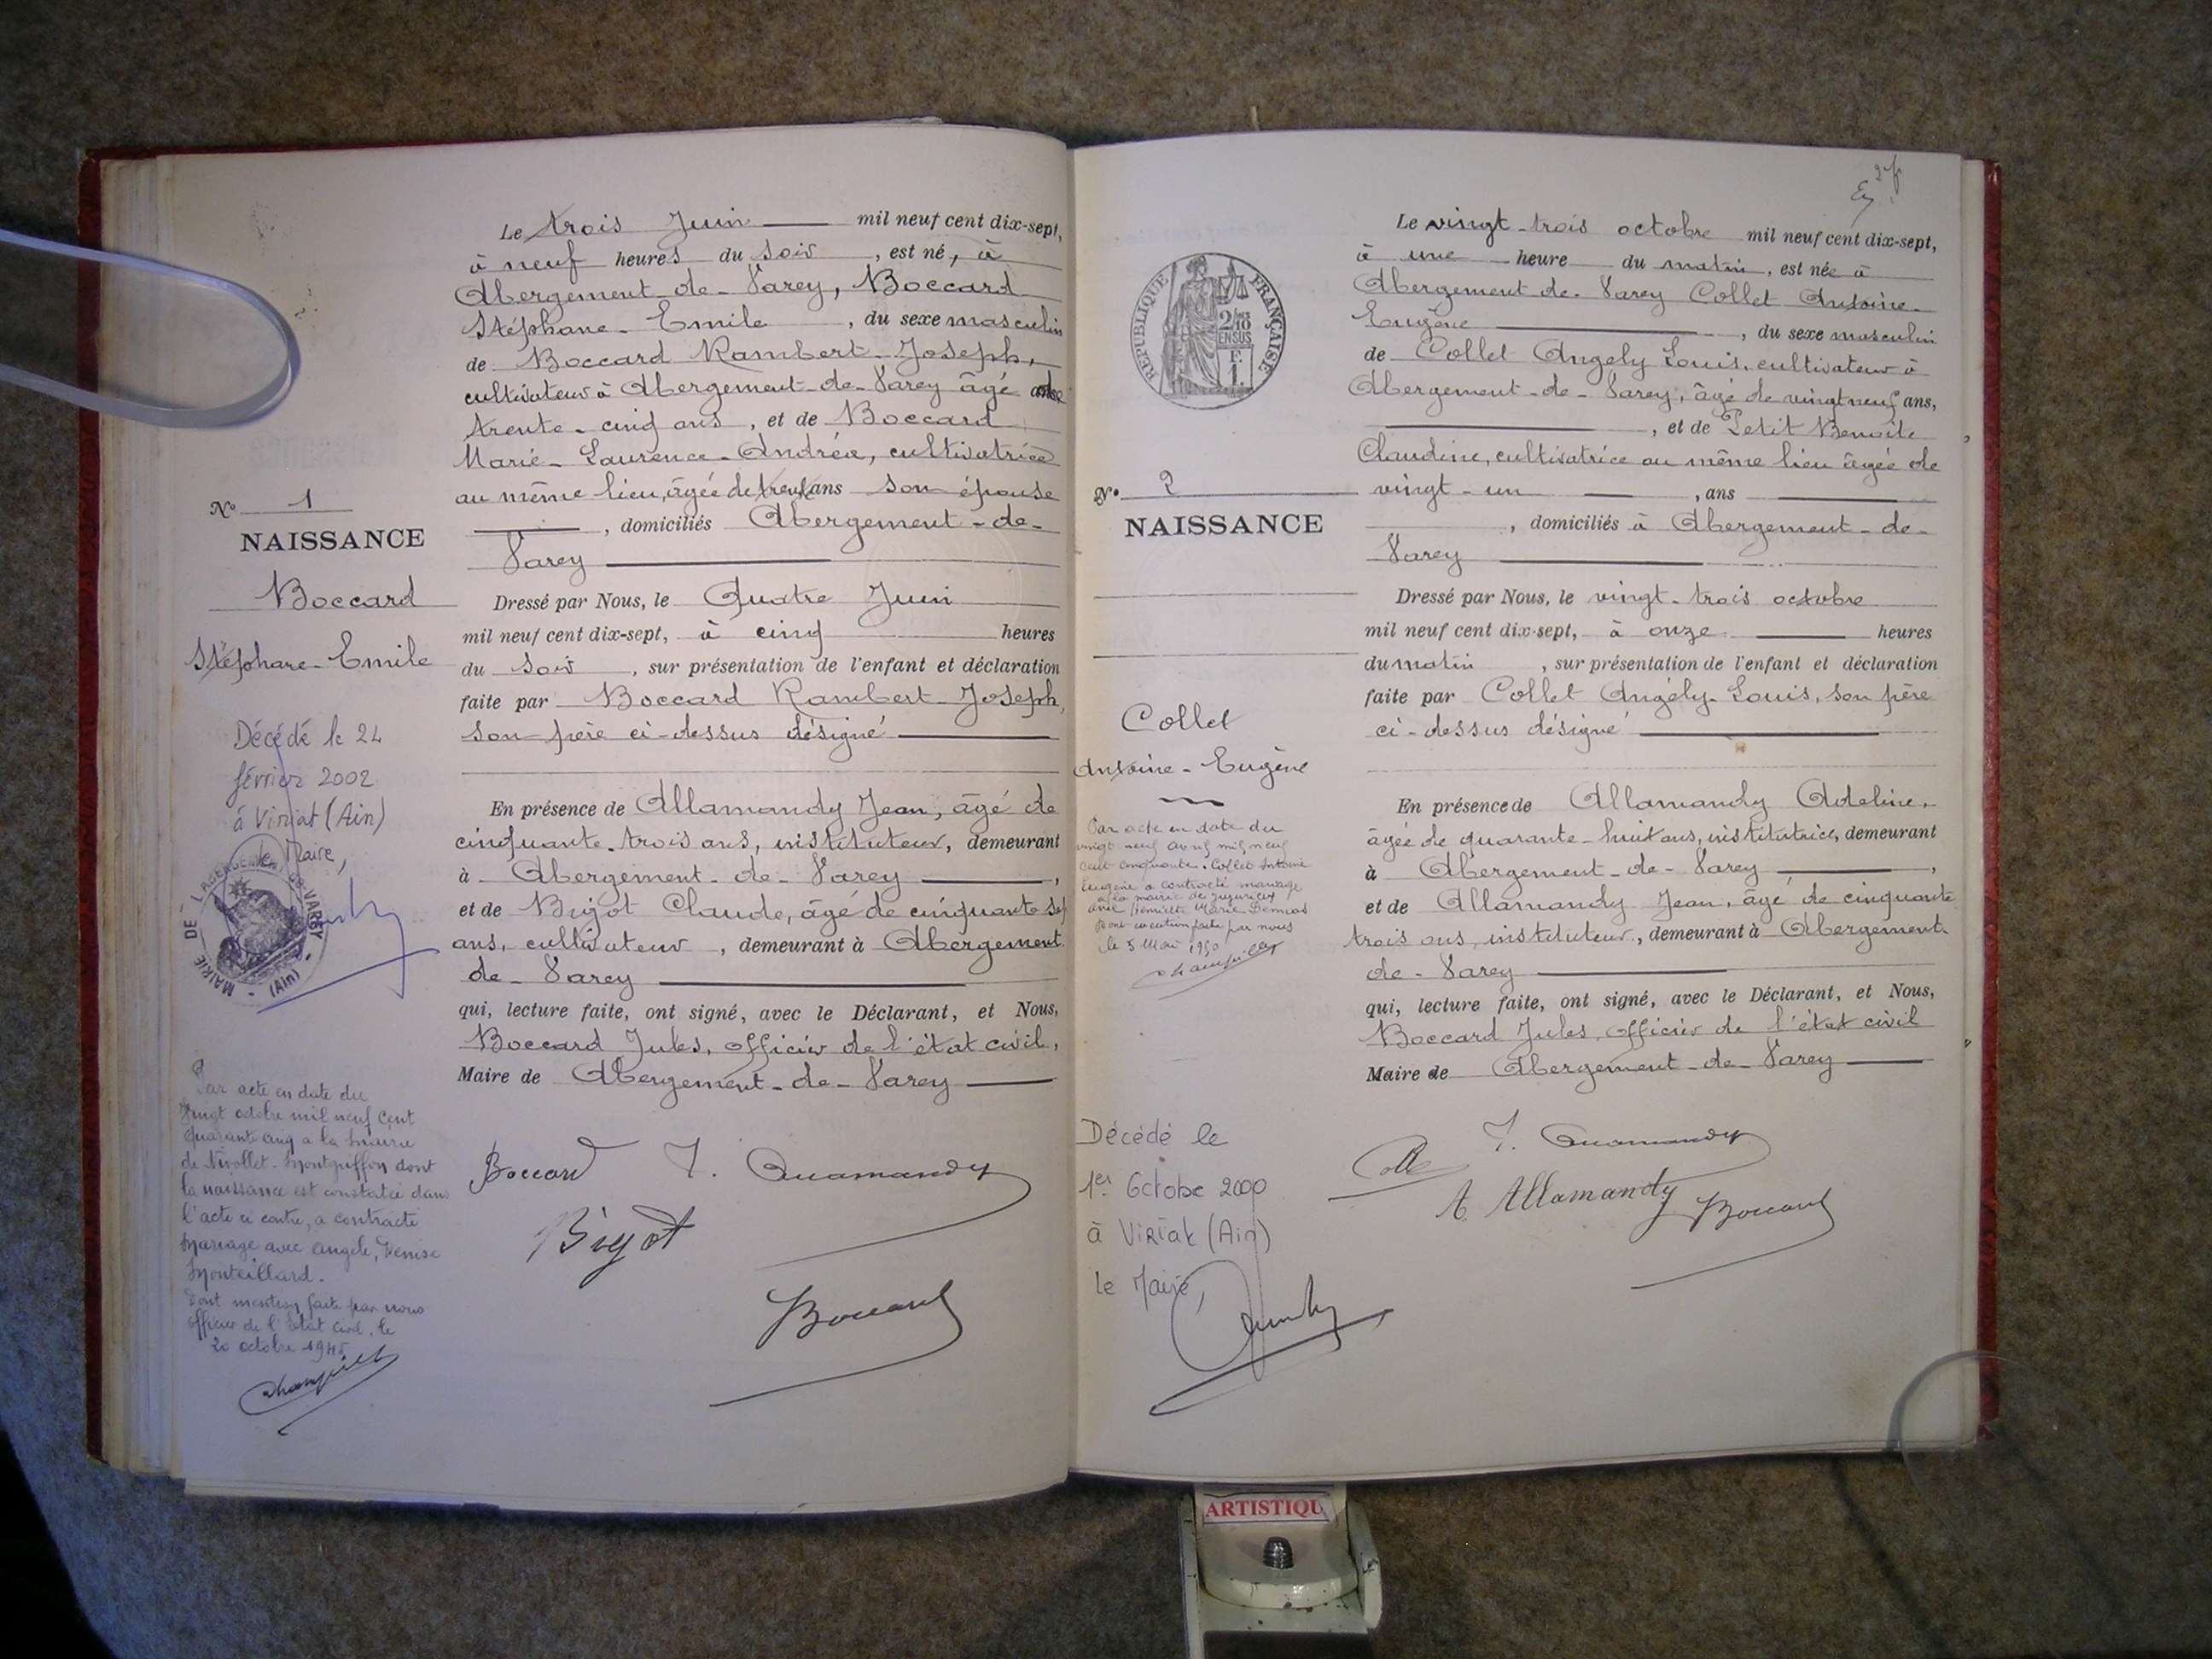 Le trois Juin mil neuf cent dix-sept,
à neuf heures du soir, est né, à
Abergement-de-Varey, Boccard
Stéphane-Emile, du sexe masculin
de Boccard Rambert-Joseph,
cultivateur à Abergement-de-Varey âgé de
trente-cinq ans, et de Boccard
Marie-Laurence-Andréa, cultivatrice
au même lieu, âgée de ans son épouse
, domiciliés Abergement-de-
Varey
Dressé par Nous, le Quatre Juin
mil neuf cent dix-sept, à cinq heures
du soir, sur présentation de l'enfant et déclaration
faite par Boccard Rambert-Joseph,
son père ci-dessus désigné
En présence de Allamandy Jean, âgé de
cinquante-trois ans, instituteur, demeurant
à Abergement-de-Varey,
et de Bigot Claude, âgé de cinquante sept
ans, cultivateur, demeurant à Abergement
de-Varey
qui, lecture faite, ont signé, avec le Déclarant, et Nous,
Boccard Jules, officier de l'état civil,
Maire de Abergement-de-Varey
Boccard J. Allamandy
Bigot
Boccard
N° 1
NAISSANCE
Boccard
Stéphane-Emile
Décédé le 24
février 2002
à Viriat (Ain)
le Maire,
MAIRIE DE L'ABERGEMENT DE VAREY - (Ain) -
Par acte en date du
vingt octobre mil neuf cent
quarante cinq a la mairie
de Nivollet-Montgriffon dont
la naissance est constatée dans
l'acte ci contre, a contracté
mariage avec Angèle, Denise
Monteillard.
Dont mention faite par nous
officier de l'Etat Civil, le
20 octobre 1945
2f
REPUBLIQUE FRANÇAISE
2/10 EN SUS
1 F.
N° 2
NAISSANCE
Collet
Antoine-Eugène
Par acte en date du
vingt neuf avril mil neuf
cent cinquante. Collet Antoine
Eugène a contracté mariage
à la mairie de Jujurieux
avec Henriette Marie
Dont mention faite par nous
le 5 Mai 1950
Décédé le
1er Octobe 2000
à Viriat (Ain)
le Maire,
Le vingt-trois octobre mil neuf cent dix-sept,
à une heure du matin, est née à
Abergement-de-Varey Collet Antoine-
Eugène, du sexe masculin
de Collet Angely Louis, cultivateur à
Abergement-de-Varey, âgé de vingt neuf ans,
, et de Petit Benoîte
Claudine, cultivatrice au même lieu âgée de
vingt-un, ans
, domiciliés à Abergement-de-
Varey
Dressé par Nous, le vingt-trois octobre
mil neuf cent dix-sept, à onze heures
du matin, sur présentation de l'enfant et déclaration
faite par Collet Angély-Louis, son père
ci-dessus désigné
En présence de Allamandy Adeline,
âgée de quarante-huit ans, institutrice, demeurant
à Abergement-de-Varey,
et de Allamandy Jean, âgé de cinquante
trois ans, instituteur, demeurant à Abergement-
de-Varey
qui, lecture faite, ont signé, avec le Déclarant, et Nous,
Boccard Jules, officier de l'état civil
Maire de Abergement-de-Varey
J. Allamandy
A. Allamandy Boccard
ARTISTIQU